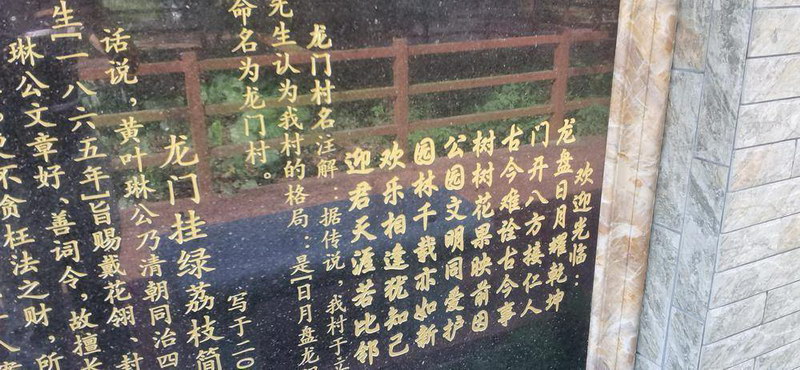 欢迎光临：
龙盘日月耀乾坤
门开八方接仁人
古今难诠古今事
树树花果映前因
公园文明同爱护
园林千载亦如新
欢乐相逢犹知己
迎君天涯若比邻
龙门村名注解：据传说，我村于立
先生认为我村的格局：是日月盘龙
命名为龙门村。
写于二〇
龙门挂绿荔枝简
话说，黄叶琳公乃清朝同治四
生[一八六五年]旨赐戴花翎、封
琳公文章好、善词令，故擅长
不贪枉法之财，所